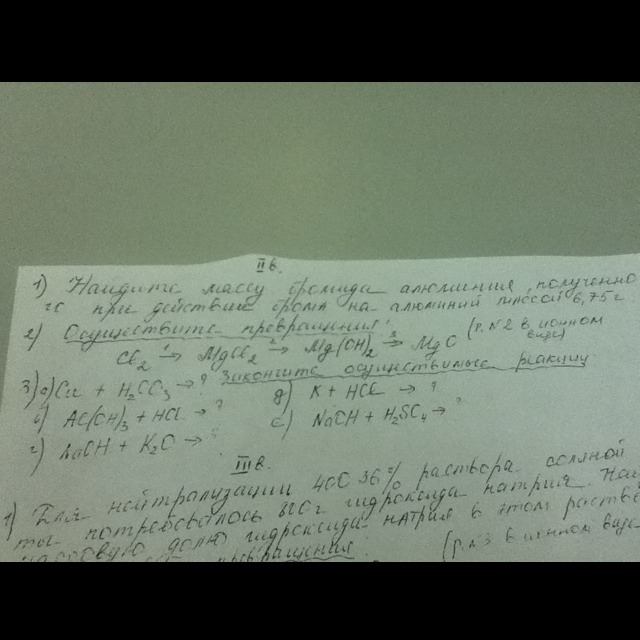 II в.
1) Найдите массу бромида алюминия, полученно
го при действии брома на алюминий массой 6,75 г
2) Осуществите превращения: (р. №2 в ионном
виде)
Cl2 1→ MgCl2 2→ Mg(OH)2 3→ MgO
Закончите осуществимые реакции
3) а) Cu + H2CO3 → ? д) K + HCl → ?
Al(OH)3 + HCl → ? е) NaOH + H2SO4 → ?
г) + K2O → ?
III в.
1) Для нейтрализации 400 36% раствора соляной
ты потребовалось гидроксида натрия
массовую долю гидроксида натрия в этом
превращения: (р. №3 в ионном виде